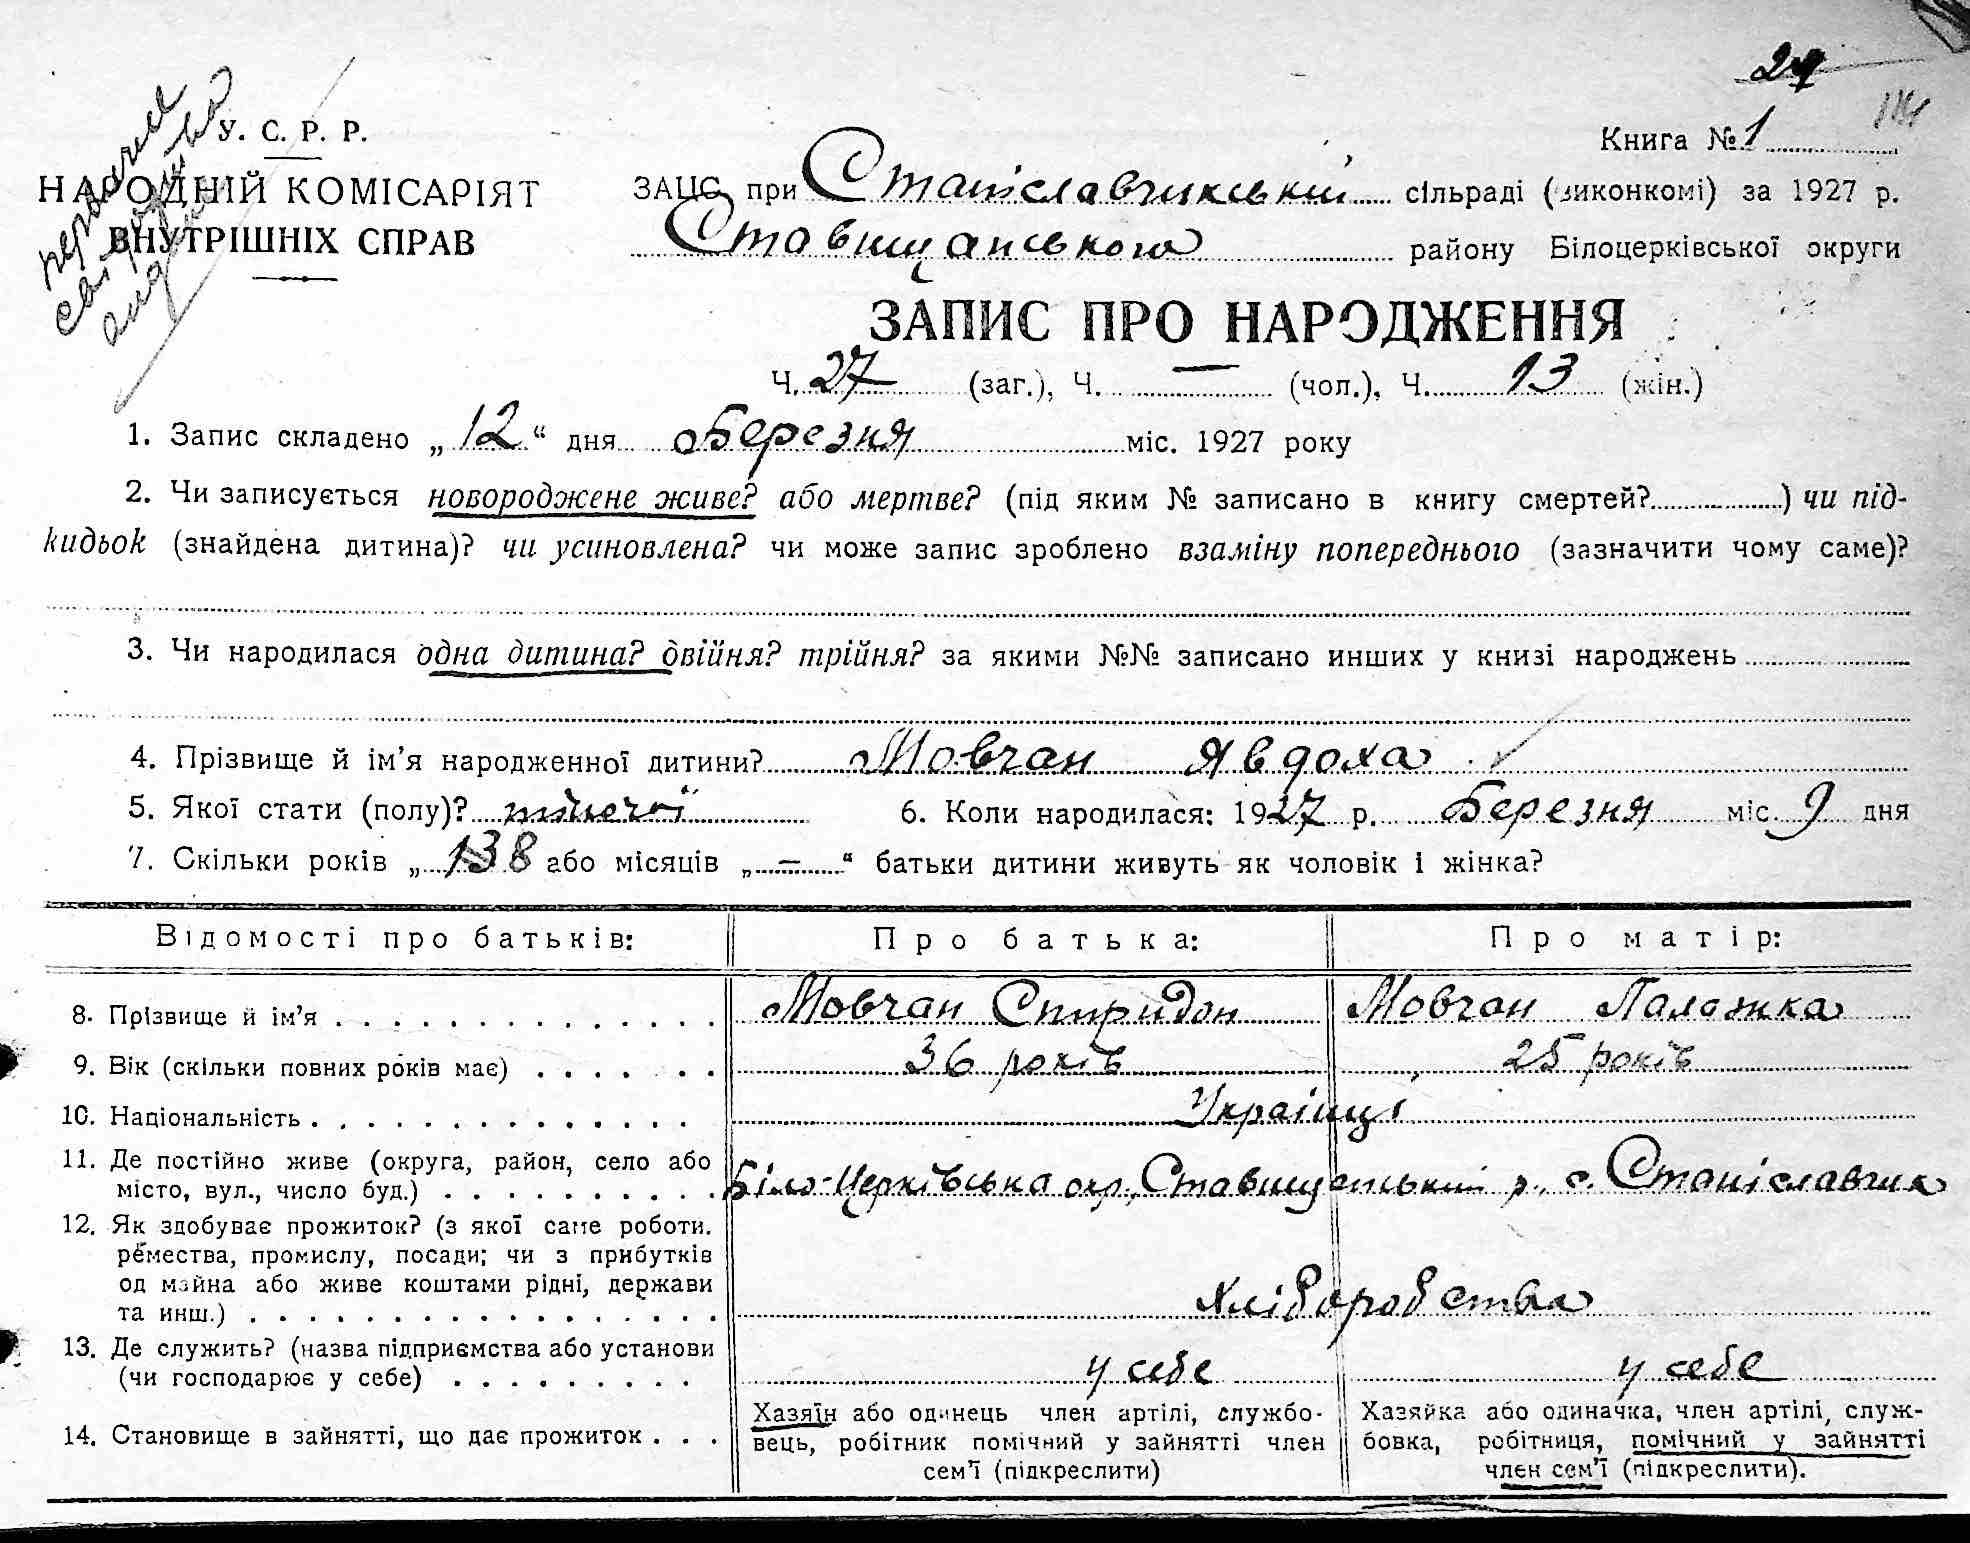 24
У. С. Р. Р.
НАРОДНІЙ КОМІСАРІЯТ
ВНУТРІШНІХ СПРАВ
Книга № 1
ЗАЦС при Станіславчикській сільраді (виконкомі) за 1927 р.
Ставищанського району Білоцерківської округи
ЗАПИС ПРО НАРОДЖЕННЯ
Ч. 27 (заг.), Ч. — (чол.), Ч. 13 (жін.)
1. Запис складено „12“ дня Березня міс. 1927 року
2. Чи записується новороджене живе? або мертве? (під яким № записано в книгу смертей?) чи під-
кидьок (знайдена дитина)? чи усиновлена? чи може запис зроблено взаміну попереднього (зазначити чому саме)?
3. Чи народилася одна дитина? двійня? трійня? за якими №№ записано инших у книзі народжень
4. Прізвище й ім'я народженної дитини? Мовчан Явдоха
5. Якої стати (полу)? жіночої 6. Коли народилася: 1927 р. Березня міс. 9 дня
7. Скільки років „ 8 або місяців „—“ батьки дитини живуть як чоловік і жінка?
Відомості про батьків: Про батька: Про матір:
8. Прізвище й ім'я Мовчан Спиридон Мовчан Палажка
9. Вік (скільки повних років має) 36 років 25 років
10. Національність Українці
11. Де постійно живе (округа, район, село або
місто, вул., число буд.) Біло-Церківська окр., Ставищанський р., с. Станіславчик
12. Як здобуває прожиток? (з якої саме роботи.
ремества, промислу, посади; чи з прибутків
од майна або живе коштами рідні, держави
та инш.) Хліборобства
13. Де служить? (назва підприємства або установи
(чи господарює у себе) у себе у себе
14. Становище в зайнятті, що дає прожиток
Хазяїн або одинець член артілі, службо-
вець, робітник помічний у зайнятті член
сем'ї (підкреслити)
Хазяйка або одиначка, член артілі, служ-
бовка, робітниця, помічний у зайнятті
член сем'ї (підкреслити).